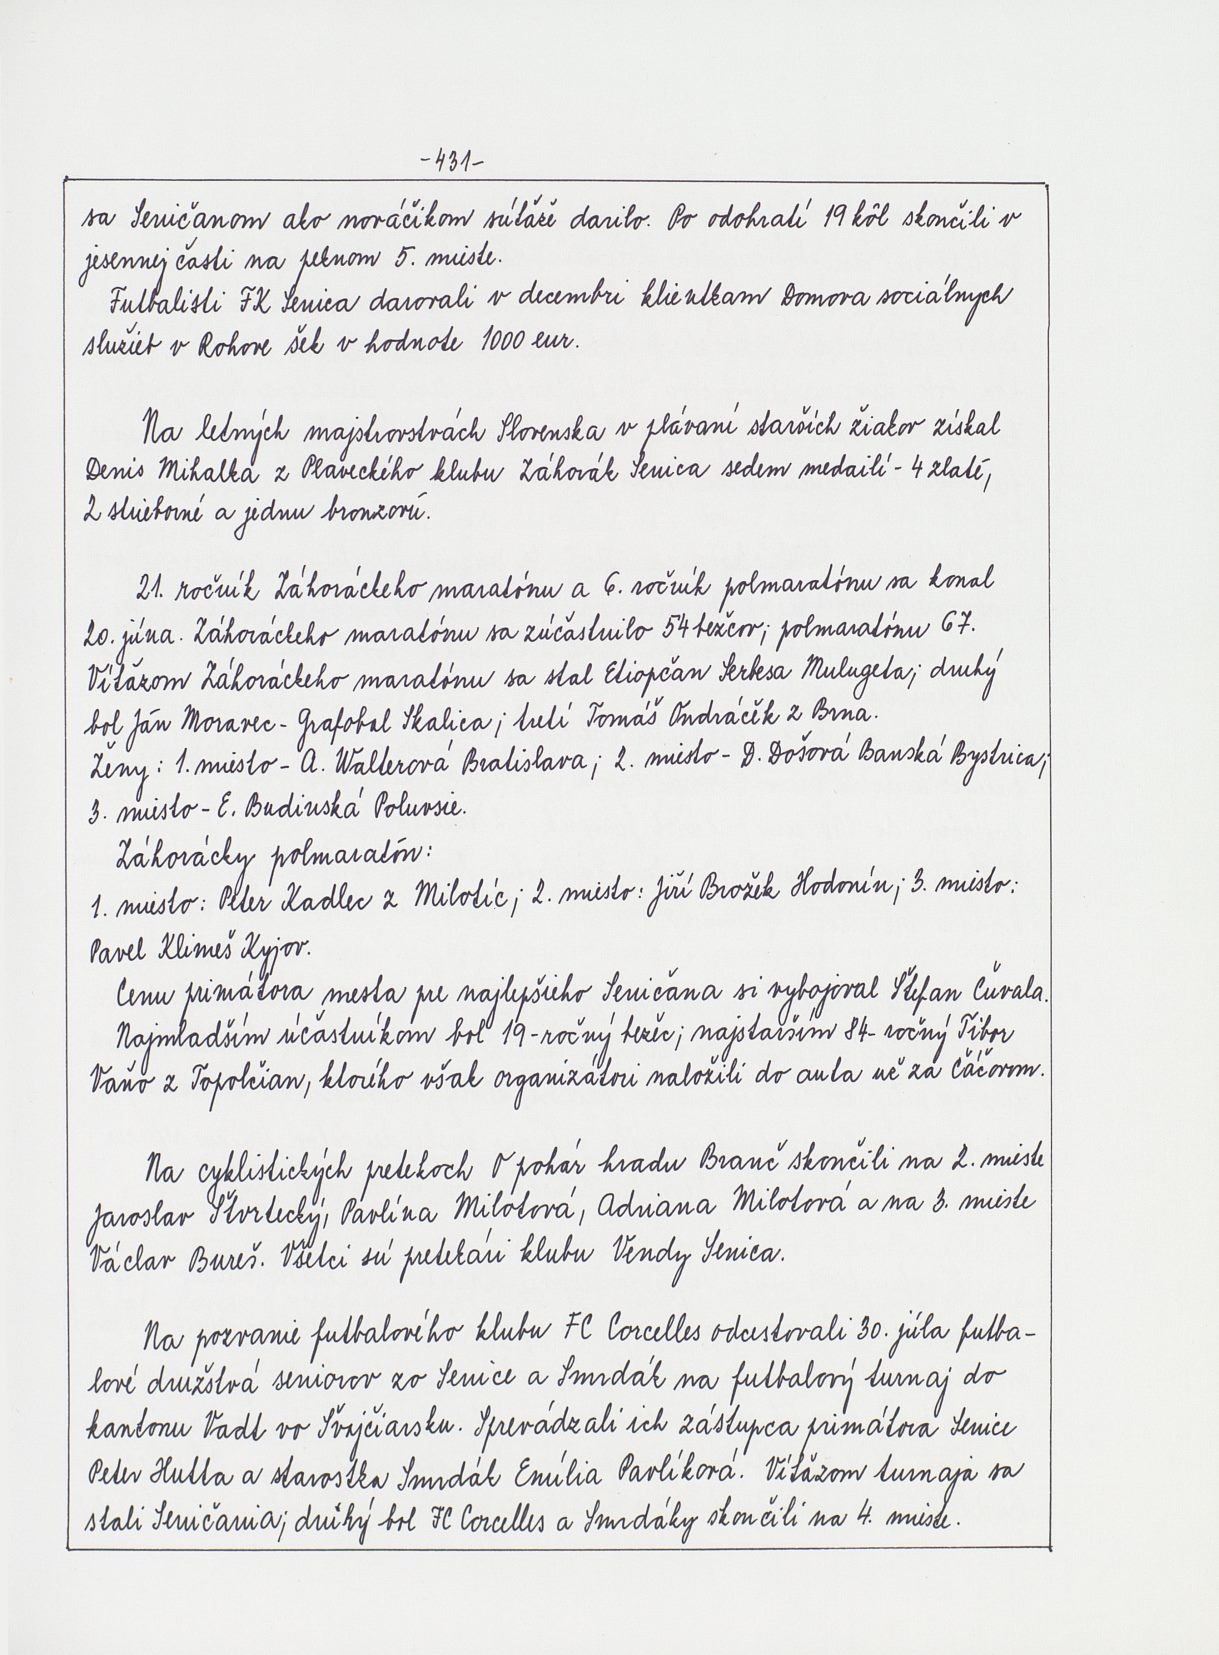 -431-
sa Seničanom ako nováčikom súťaže darilo. Po odohratí 19 kôl skončili v
jesennej časti na peknom 5. mieste.
Futbalisti FK Senica darovali v decembri klientkam Domova sociálnych
služieb v Rohove šek v hodnote 1000 eur.
Na letných majstrovstvách Slovenska v plávaní starších žiakov získal
Denis Mihalka z Plaveckého klubu Záhorák Senica sedem medailí - 4 zlaté,
2 strieborné a jednu bronzovú.
21. ročník Záhoráckeho maratónu a 6. ročník polmaratónu sa konal
20. júna. Záhoráckeho maratónu sa zúčastnilo 54 bežcov; polmaratónu 67.
Víťazom Záhoráckeho maratónu sa stal Etiopčan Serbesa Mulugeta; druhý
bol Ján Moravec - Grafobal Skalica; tretí Tomáš Ondráček z Brna.
Ženy: 1. miesto - A. Walterová Bratislava; 2. miesto - D. Došová Banská Bystrica;
3. miesto - E. Budinská Poluvsie.
Záhorácky polmaratón:
1. miesto: Peter Kadlec z Milotíc; 2. miesto: Jiří Brožek Hodonín; 3. miesto:
Pavel Klimeš Kyjov.
Cenu primátora mesta pre najlepšieho Seničana si vybojoval Štefan Čuvala.
Najmladším účastníkom bol 19-ročný bežec; najstarším 84-ročný Tibor
Vaňo z Topolčian, ktorého však organizátori naložili do auta už za Čáčovom.
Na cyklistických pretekoch O pohár hradu Branč skončili na 2. mieste
Jaroslav Štvrtecký, Pavlína Milotová, Adriana Milotová a na 3. mieste
Václav Bureš. Všetci sú pretekári klubu Vendy Senica.
Na pozvanie futbalového klubu FC Corcelles odcestovali 30. júla futba-
lové družstvá seniorov zo Senice a Smrdák na futbalový turnaj do
kantonu Vadt vo Švajčiarsku. Sprevádzali ich zástupca primátora Senice
Peter Hutta a starostka Smrdák Emília Pavlíková. Víťazom turnaja sa
stali Seničania; druhý bol FC Corcelles a Smrdáky skončili na 4. mieste.